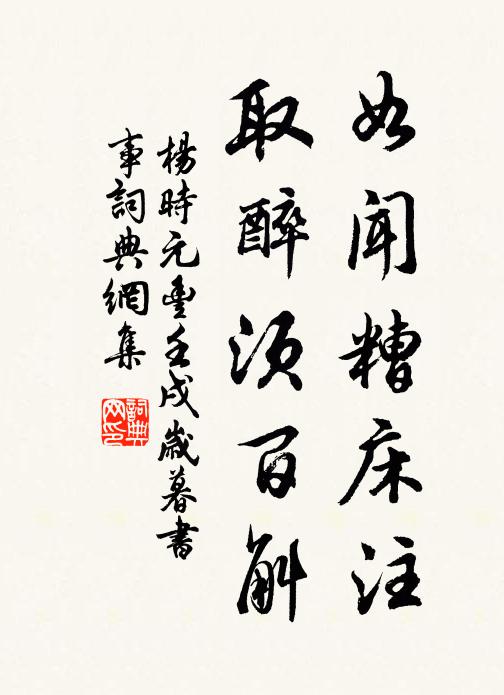 如闻糟床注
取醉须百斛
楊時元豐壬戌歲暮書
事詞典網集
詞典
网印